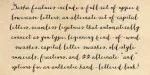 Desta features include a full set of upper &
lowercase letters, an alternate set of capital
letters, seamless ligatures that automatically
connect as you type, beginning & end - of - word
swashes, capital letter swashes, old-style
numerals, fractions, and 29 alternate "and"
options for an authentic hand-lettered look!